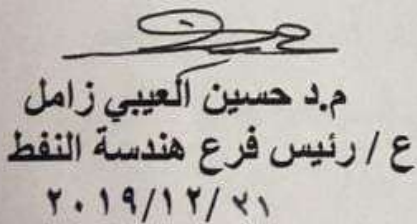 م.د حسين ألعيبي زامل
ع / رئيس فرع هندسة النفط
٢٠١٩/١٢/٣١